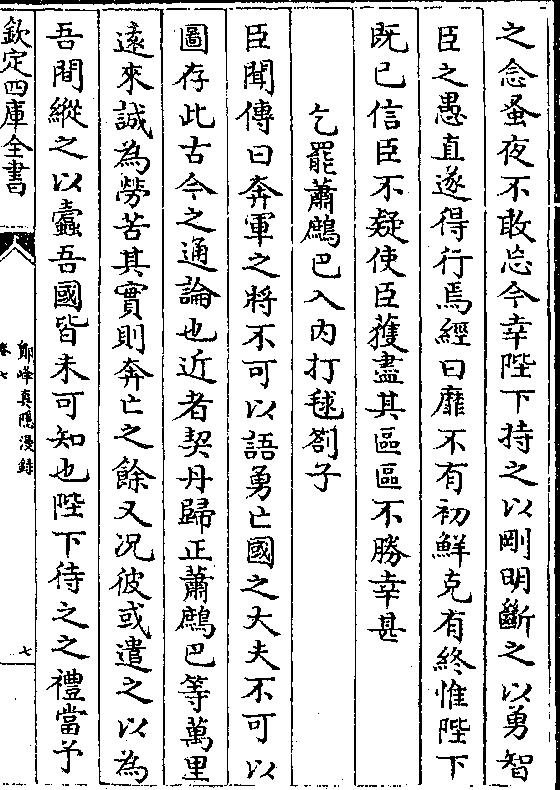 之念蚤夜不敢忘今幸陛下持之以剛明斷之以勇智
臣之愚直遂得行焉經曰靡不有初鮮克有終惟陛下
既已信臣不疑使臣獲盡其區區不勝幸甚
乞罷蕭鷓巴入内打毬劄子
臣聞傳曰奔軍之將不可以語勇亡國之大夫不可以
圖存此古今之通論也近者契丹歸正蕭鷓巴等萬里
遠來誠為勞苦其實則奔亡之餘又况彼或遣之以為
吾間縱之以蠧吾國皆未可知也陛下待之之禮當予
欽定四庫全書
鄮峰真隱漫錄
卷七
七